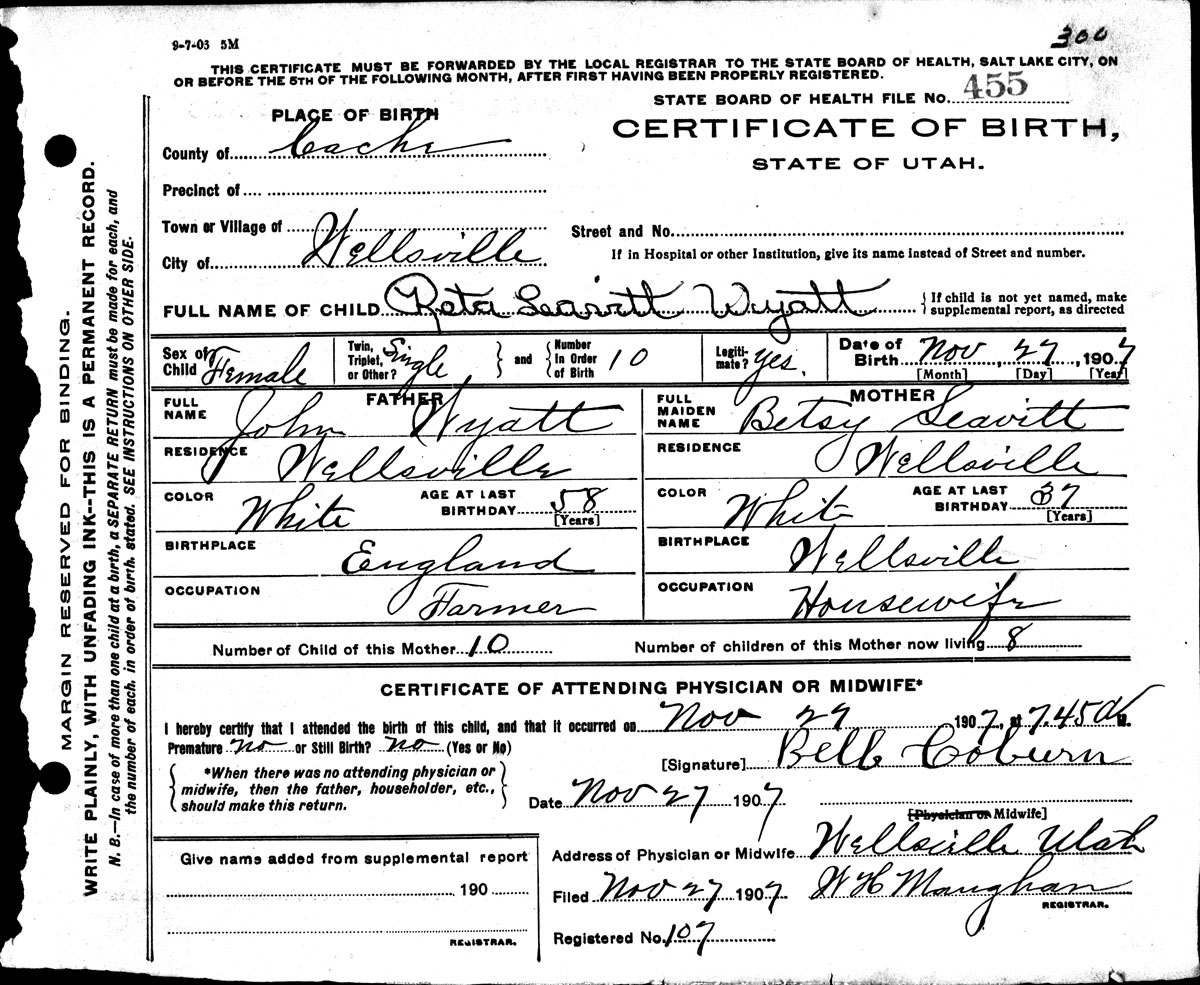 9-7-03 5M
300
THIS CERTIFICATE MUST BE FORWARDED BY THE LOCAL REGISTRAR TO THE STATE BOARD OF HEALTH, SALT LAKE CITY, ON
OR BEFORE THE 5TH OF THE FOLLOWING MONTH, AFTER FIRST HAVING BEEN PROPERLY REGISTERED.
STATE BOARD OF HEALTH FILE No. 455
PLACE OF BIRTH
CERTIFICATE OF BIRTH,
STATE OF UTAH.
County of Cache
Precinct of
Town or Village of
Street and No.
City of Wellsville
If in Hospital or other Institution, give its name instead of Street and number.
FULL NAME OF CHILD Reta Leavitt Wyatt
{ If child is not yet named, make
supplemental report, as directed
Sex of Child Female
Twin, Triplet, or Other? Single } and { Number In Order of Birth 10
Legiti-mate? yes.
Date of Birth Nov, 27, 1907
[Month] [Day] [Year]
FATHER
MOTHER
FULL NAME John Wyatt
FULL MAIDEN NAME Betsy Leavitt
RESIDENCE Wellsville
RESIDENCE Wellsville
COLOR White AGE AT LAST BIRTHDAY 58 [Years]
COLOR White AGE AT LAST BIRTHDAY 37 [Years]
BIRTHPLACE England
BIRTHPLACE Wellsville
OCCUPATION Farmer
OCCUPATION Housewife
Number of Child of this Mother 10 Number of children of this Mother now living 8
CERTIFICATE OF ATTENDING PHYSICIAN OR MIDWIFE*
I hereby certify that I attended the birth of this child, and that it occurred on Nov 27 1907, at 7.45 M.
Premature no or Still Birth? no (Yes or No)
[Signature] Bell Coburn
{ *When there was no attending physician or
midwife, then the father, householder, etc.,
should make this return. }
Date Nov 27 1907
[Physician or Midwife]
Give name added from supplemental report
190
REGISTRAR.
Address of Physician or Midwife Wellsville Utah
Filed Nov 27 1907. W H Maughan
REGISTRAR.
Registered No. 107
MARGIN RESERVED FOR BINDING.
WRITE PLAINLY, WITH UNFADING INK--THIS IS A PERMANENT RECORD.
N. B.—In case of more than one child at a birth, a SEPARATE RETURN must be made for each, and
the number of each, in order of birth, stated. SEE INSTRUCTIONS ON OTHER SIDE.